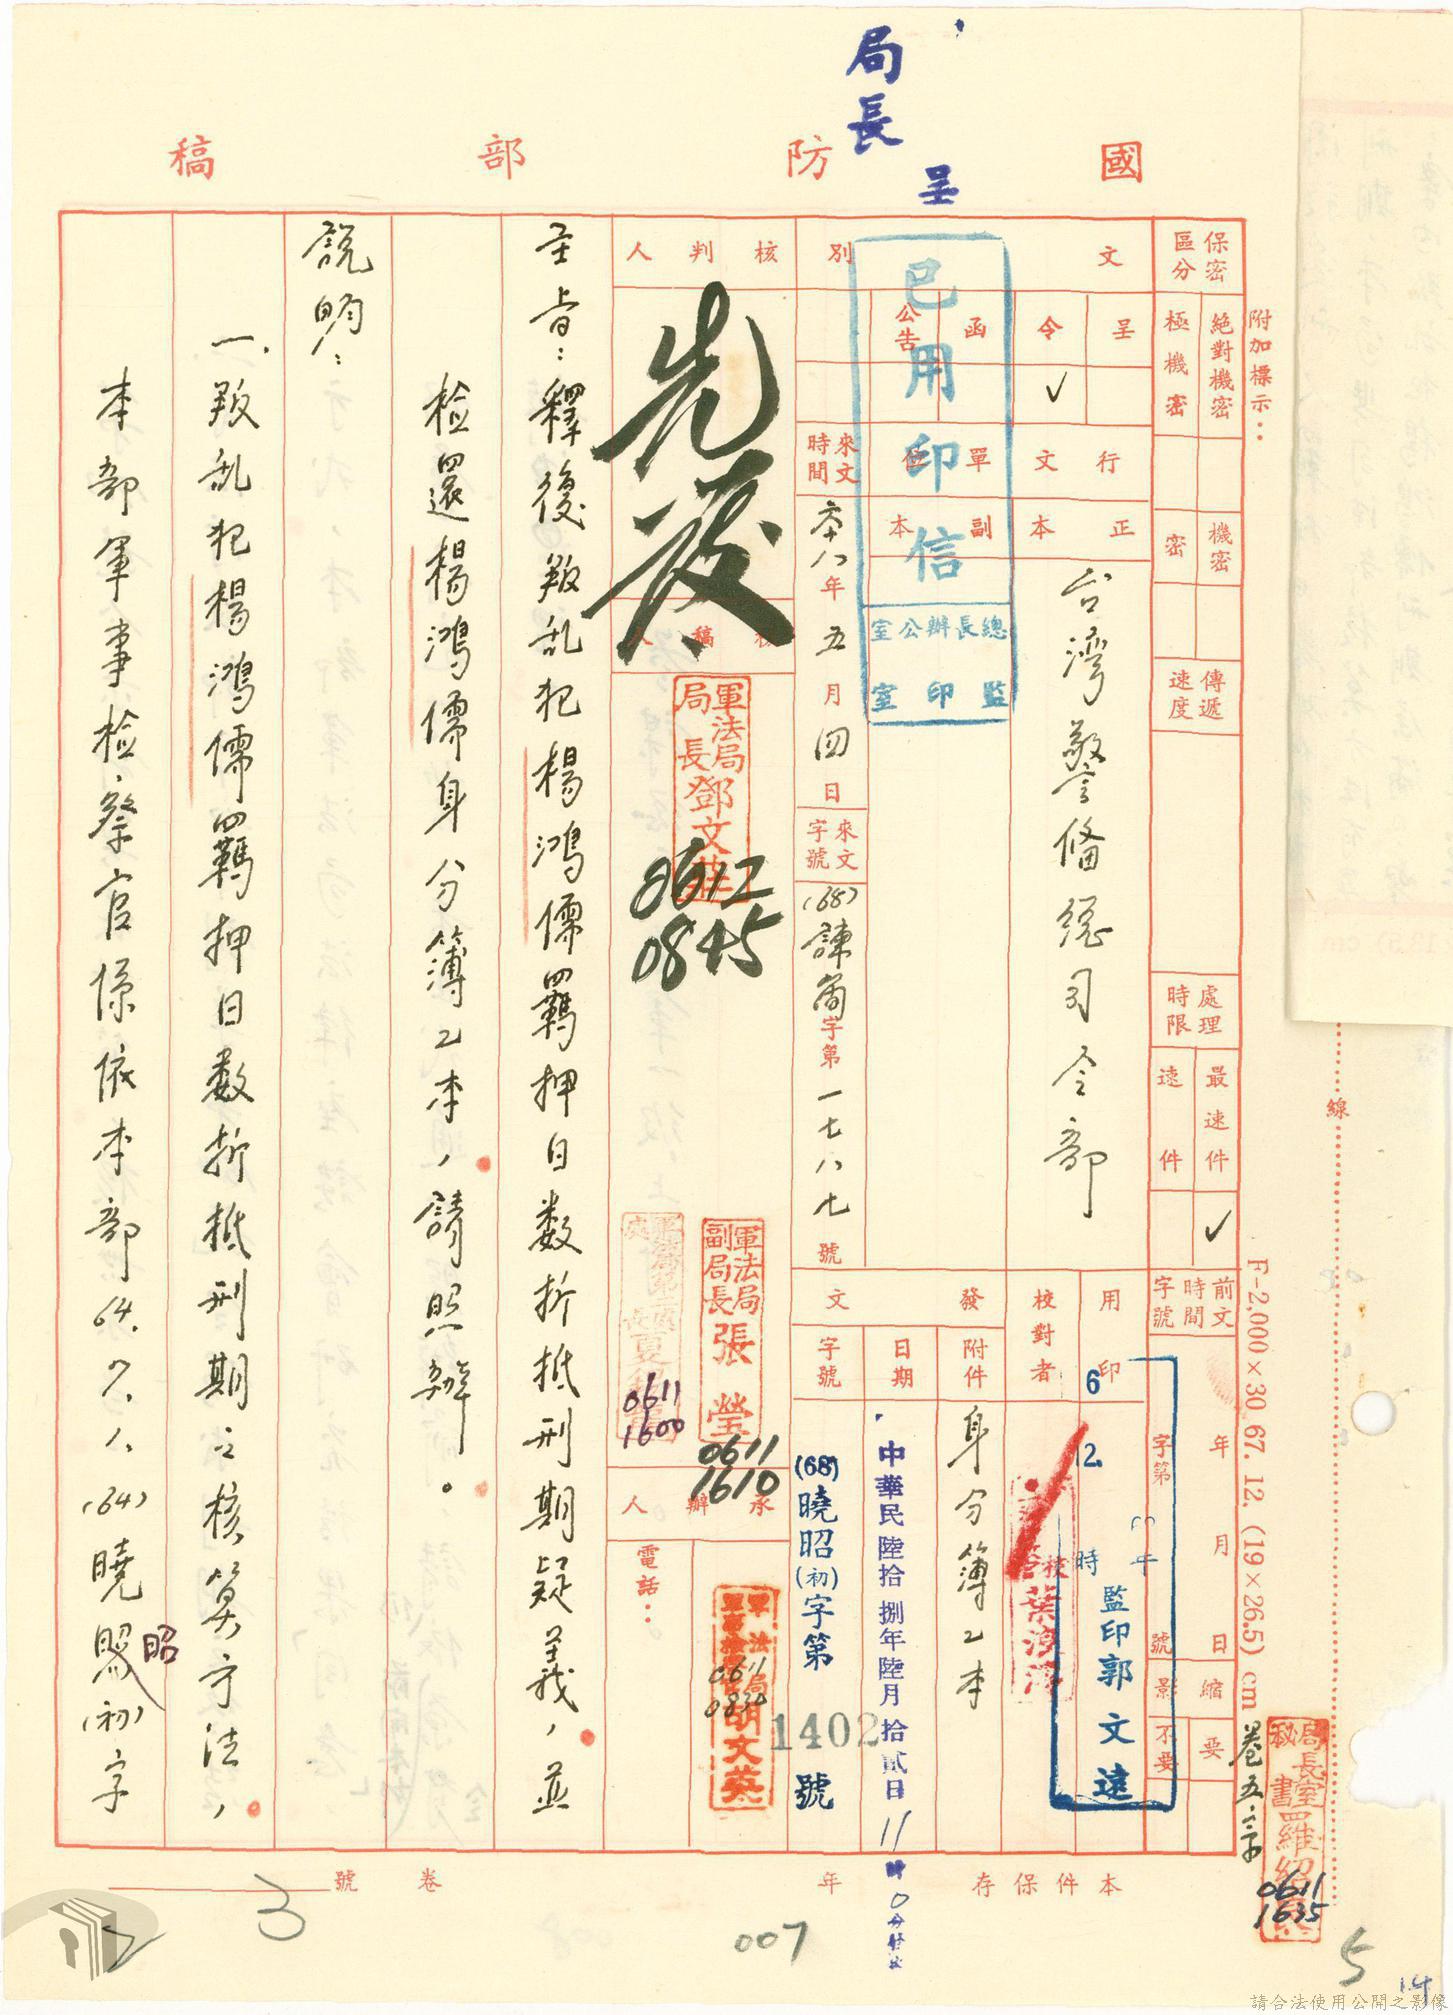 局長
呈
國防部稿
附加標示：
保密區分
絕對機密
極機密
機密
密
傳遞速度
處理時限
最速件 ✓
速件
前文時間字號
年 月 日
字第 號
縮影
要
不要
文別
呈
令 ✓
函
公告
行文單位
正本
副本
台湾警俻總司令部
已用印信
總長辦公室
監印室
來文時間
六八年五月四日
來文字號
(68)諫字第一七八七號
用印
6
12
午
時
監印郭文遠
校對者
校
葉
發文
附件
身分簿乙本
日期
中華民陸拾捌年陸月拾貳日11時0分
字號
(68)曉昭(初)字第1402號
核判人
先發
核稿人
軍法局局長鄧文
0612
0845
軍法局副局長張瑩
0611
1610
處長夏
0611
1600
承辦人
軍法局
胡文英
0611
0830
電話：
主旨：釋復叛乱犯楊鴻儒羈押日数折抵刑期疑義，並
检還楊鴻儒身分簿乙本，請照辦。
說明：
一、叛乱犯楊鴻儒羈押日数折抵刑期之核算方法，
本部軍事检察官係依本部64.7.1.(64)曉昭(初)字
本件保存
年
卷
號
3
007
F-2,000×30 67. 12. (19×26.5) cm
卷五
線
局長室秘書羅紹
0611
1635
5
14
請合法使用公開之影像